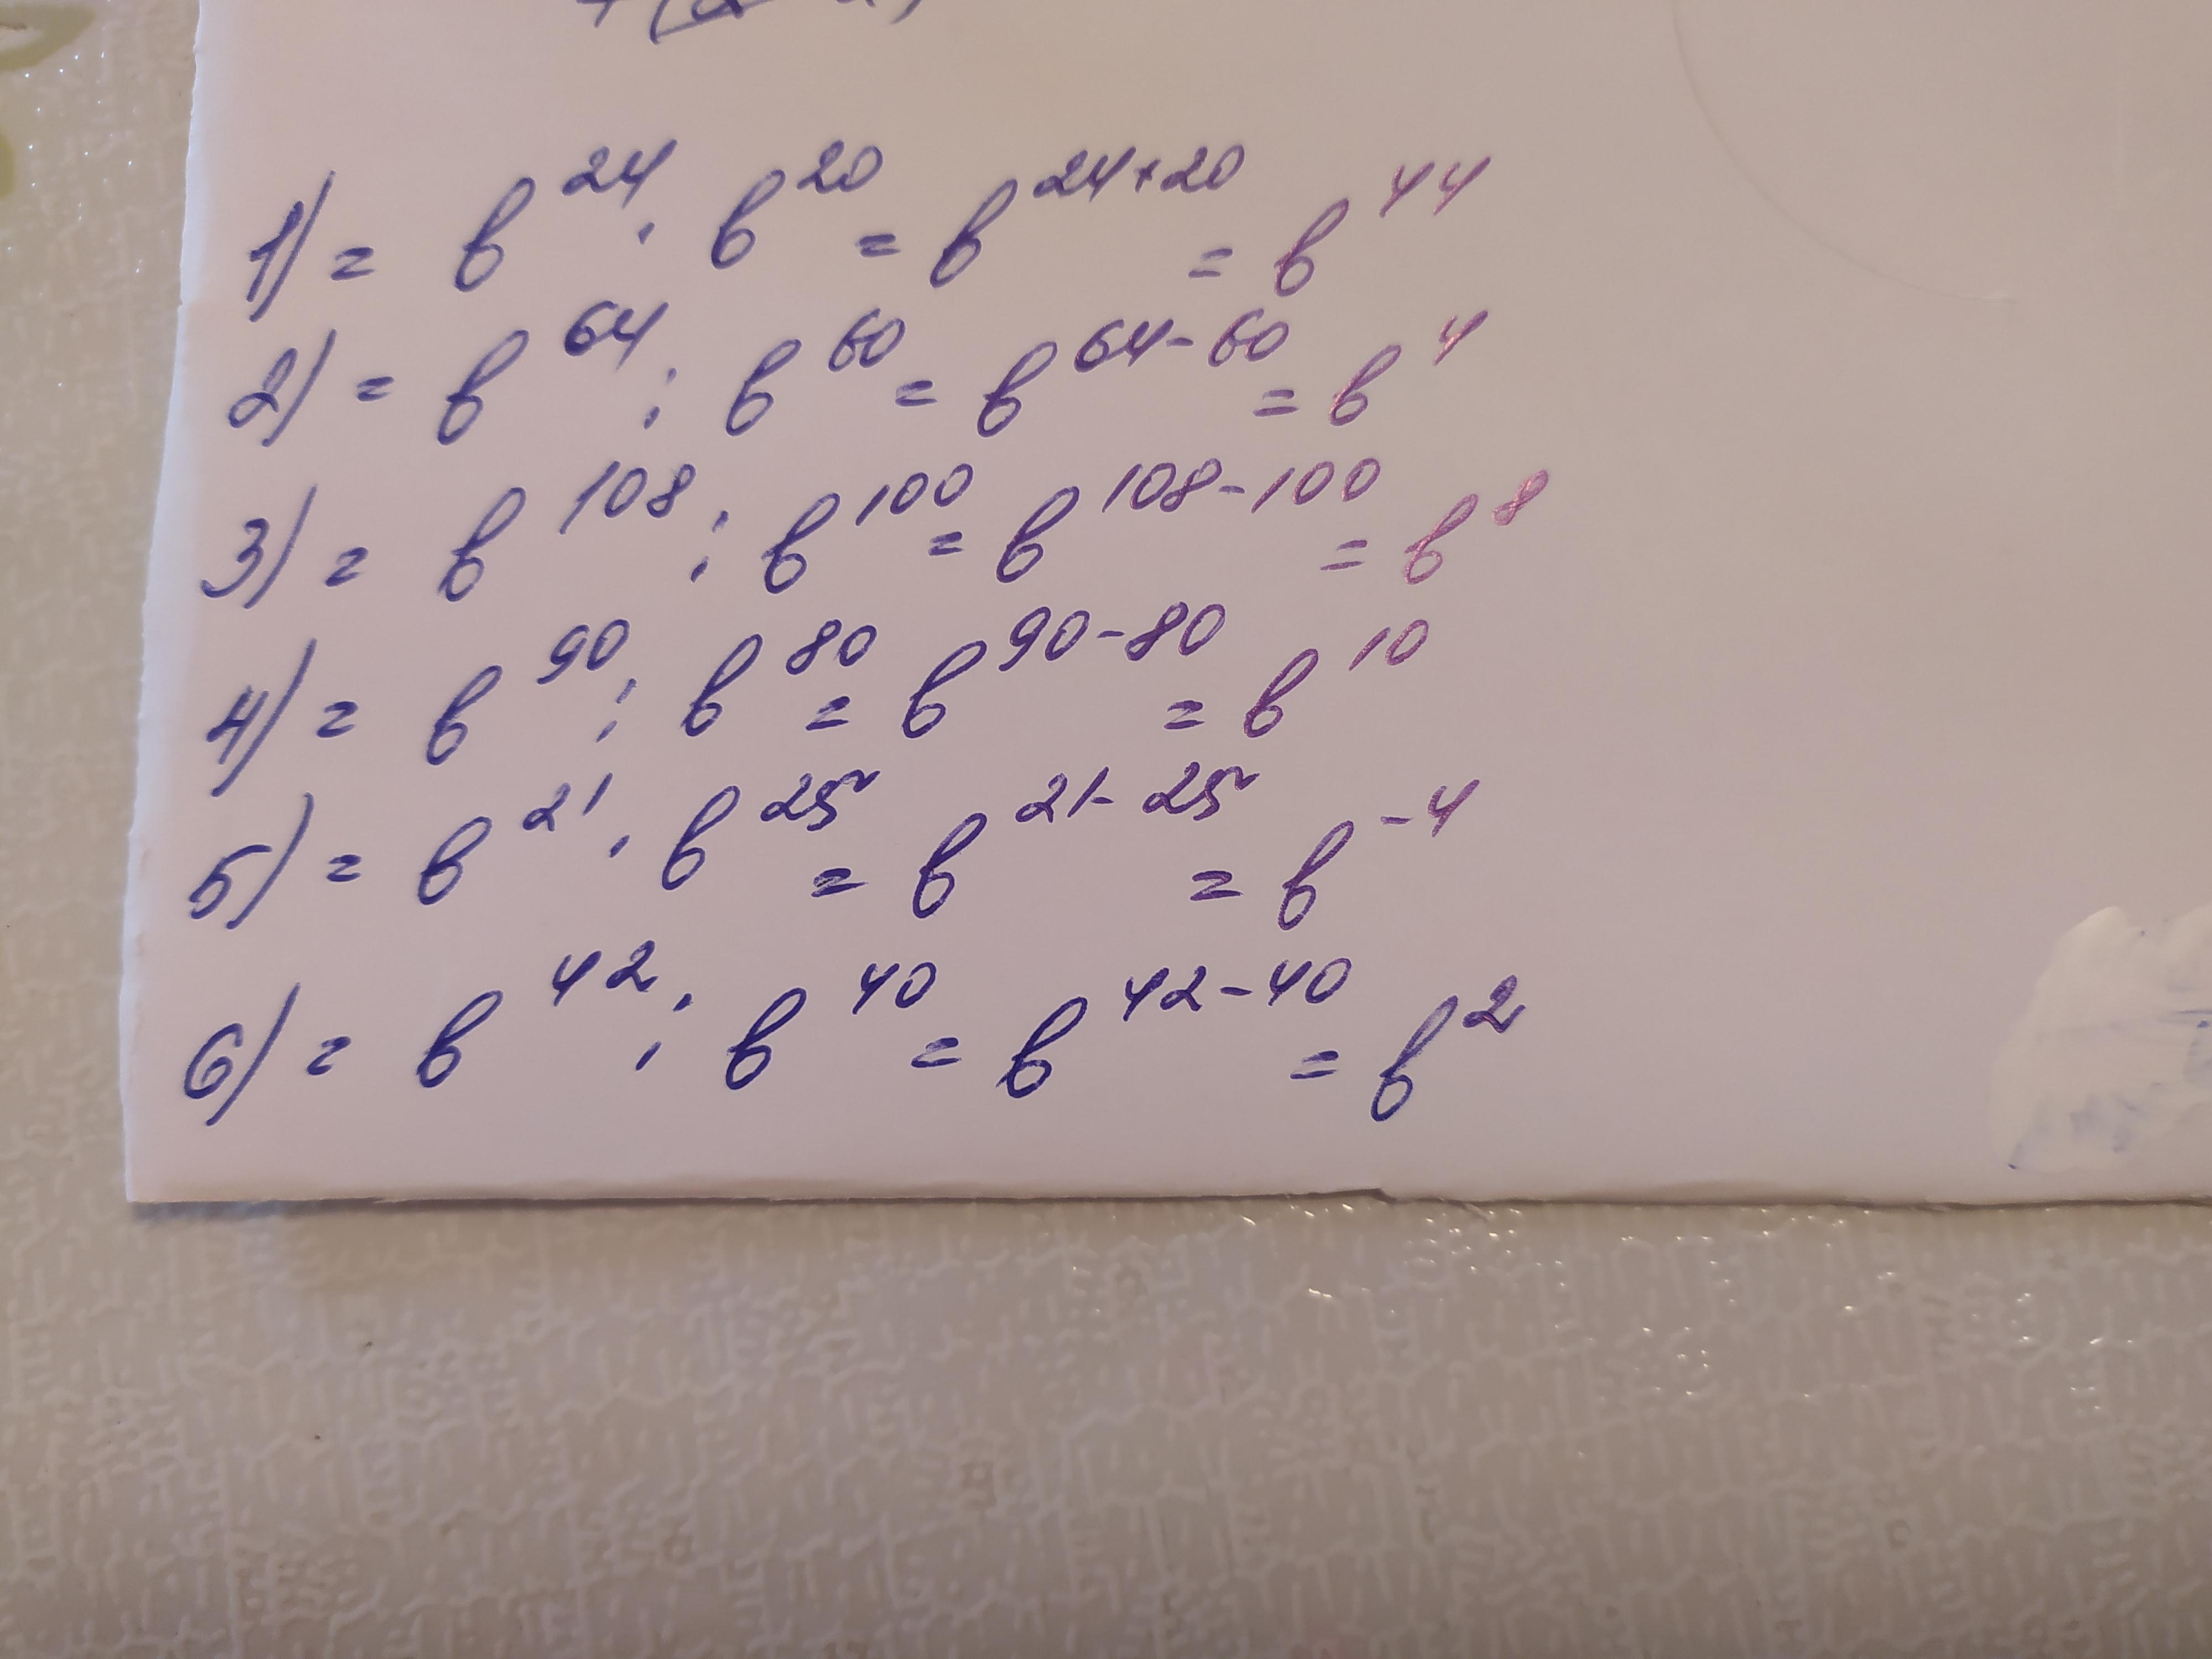 1) = b^24 · b^20 = b^24+20 = b^44
2) = b^64 : b^60 = b^64-60 = b^4
3) = b^108 : b^100 = b^108-100 = b^8
4) = b^90 : b^80 = b^90-80 = b^10
5) = b^21 · b^25 = b^21-25 = b^-4
6) = b^42 : b^40 = b^42-40 = b^2